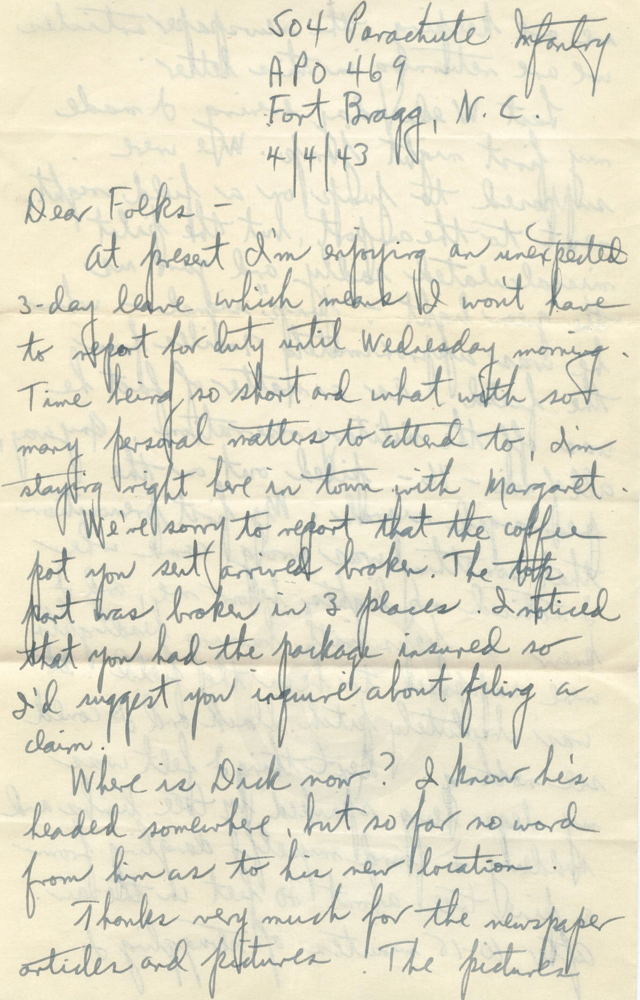 504 Parachute Infantry
APO 469
Fort Bragg, N. C.
4/4/43
Dear Folks –
At present I'm enjoying an unexpected
3-day leave which means I won't have
to report for duty until Wednesday morning.
Time being so short and what with so
many personal matters to attend to, I'm
staying right here in town with Margaret.
We're sorry to report that the coffee
pot you sent arrived broken. The top
part was broken in 3 places. I noticed
that you had the package insured so
I'd suggest you inquire about filing a
claim.
Where is Dick now? I know he's
headed somewhere, but so far no word
from him as to his new location.
Thanks very much for the newspaper
articles and pictures. The pictures